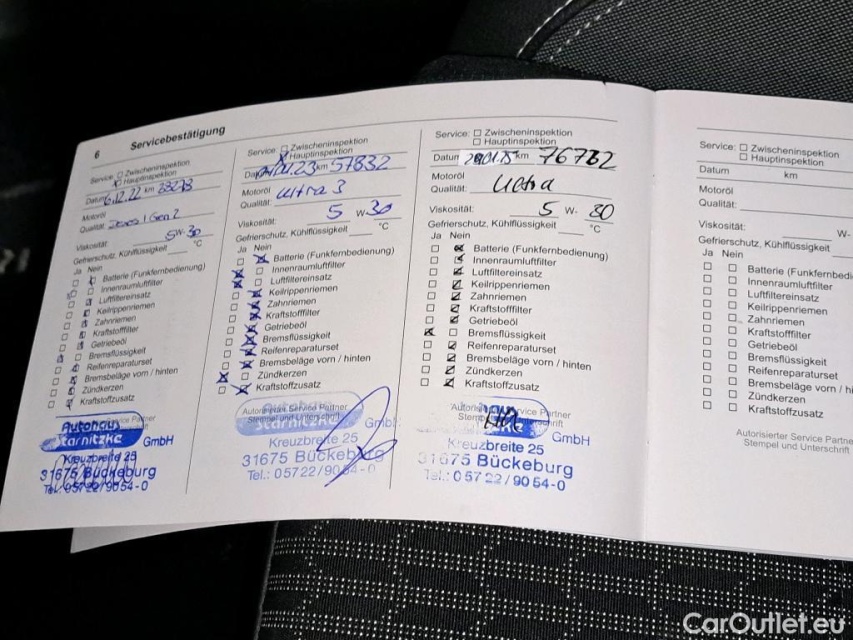 6 Servicebestätigung
Service: Zwischeninspektion
Hauptinspektion
Datum 6.12.22 km
Motoröl
Qualität:
Viskosität: 5 W-30
Gefrierschutz, Kühlflüssigkeit °C
Ja Nein
Batterie (Funkfernbedienung)
Innenraumluftfilter
Luftfiltereinsatz
Keilrippenriemen
Zahnriemen
Kraftstofffilter
Getriebeöl
Bremsflüssigkeit
Reifenreparaturset
Bremsbeläge vorn / hinten
Zündkerzen
Kraftstoffzusatz
Autohaus
Starnitzke GmbH
Kreuzbreite 25
31675 Bückeburg
Tel.: 05722/9054-0
Service: Zwischeninspektion
Hauptinspektion
km 57832
Motoröl
Qualität: ultra 3
Viskosität: 5 W-30
Gefrierschutz, Kühlflüssigkeit °C
Ja Nein
Batterie (Funkfernbedienung)
Innenraumluftfilter
Luftfiltereinsatz
Keilrippenriemen
Zahnriemen
Kraftstofffilter
Getriebeöl
Bremsflüssigkeit
Reifenreparaturset
Bremsbeläge vorn / hinten
Zündkerzen
Kraftstoffzusatz
Autorisierter Service Partner
Stempel und Unterschrift
Autohaus
Starnitzke GmbH
Kreuzbreite 25
31675 Bückeburg
Tel.: 05722/9054-0
Service: Zwischeninspektion
Hauptinspektion
Datum km 76732
Motoröl
Qualität: Ultra
Viskosität: 5 W- 30
Gefrierschutz, Kühlflüssigkeit °C
Ja Nein
Batterie (Funkfernbedienung)
Innenraumluftfilter
Luftfiltereinsatz
Keilrippenriemen
Zahnriemen
Kraftstofffilter
Getriebeöl
Bremsflüssigkeit
Reifenreparaturset
Bremsbeläge vorn / hinten
Zündkerzen
Kraftstoffzusatz
Service Partner
GmbH
Kreuzbreite 25
31675 Bückeburg
Tel.: 05722/9054-0
Service: Zwischeninspektion
Hauptinspektion
Datum km
Motoröl
Qualität:
Viskosität: W-
Gefrierschutz, Kühlflüssigkeit
Ja Nein
Batterie (Funkfernbedi
Innenraumluftfilter
Luftfiltereinsatz
Keilrippenriemen
Zahnriemen
Kraftstofffilter
Getriebeöl
Bremsflüssigkeit
Reifenreparaturset
Bremsbeläge vorn / hi
Zündkerzen
Kraftstoffzusatz
Autorisierter Service Partne
Stempel und Unterschrift
CarOutlet.eu